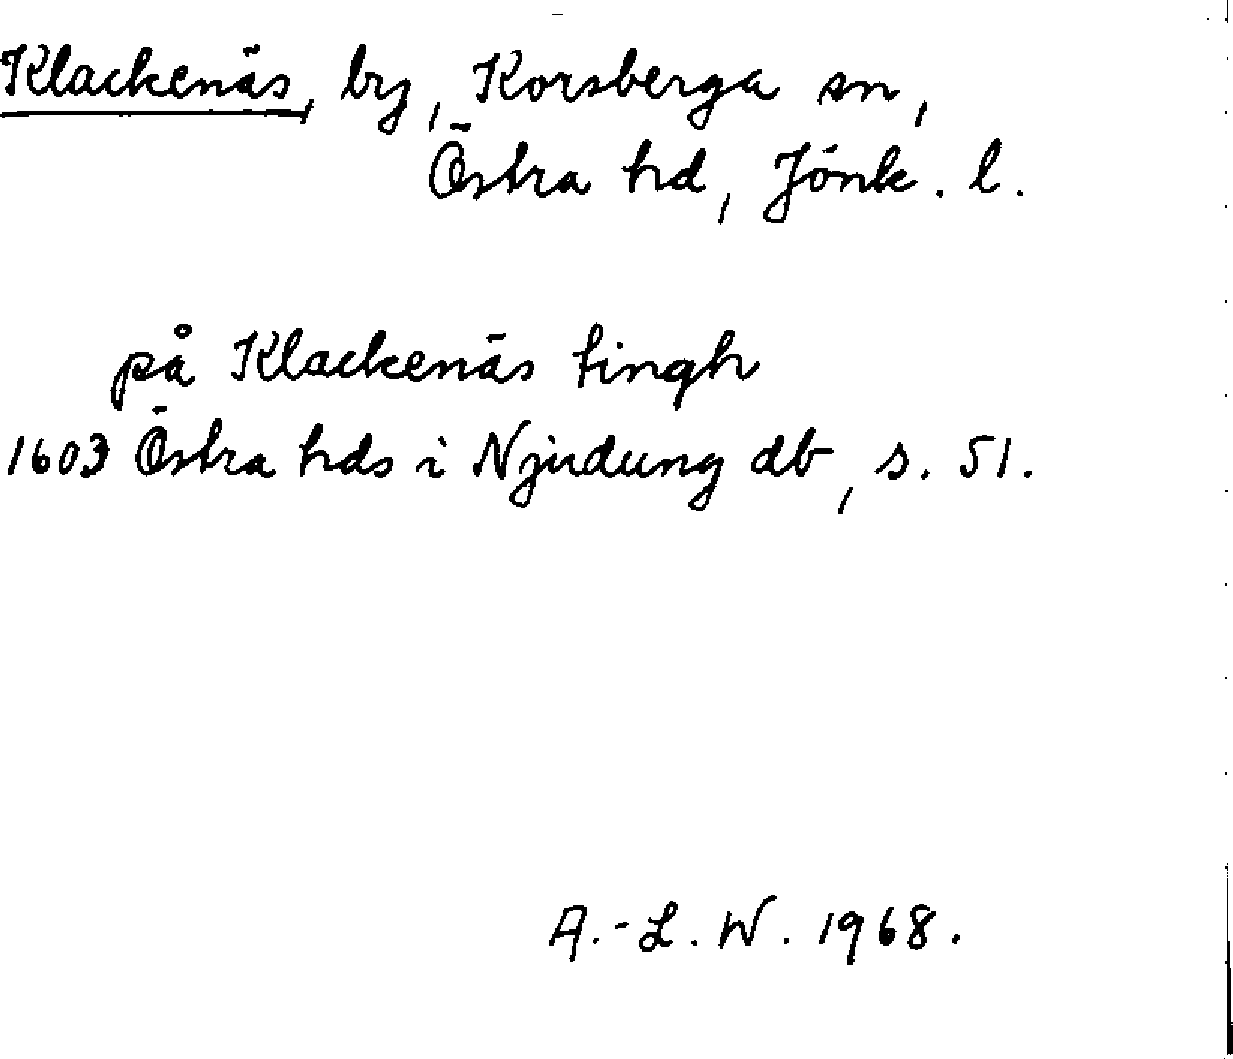 Klackenäs, by, Korsberga sn,
Östra hd, Jönk. l.
på Klackenäs tingh
1603 Östra hds i Njudung db, s. 51.
A.-L. W. 1968.